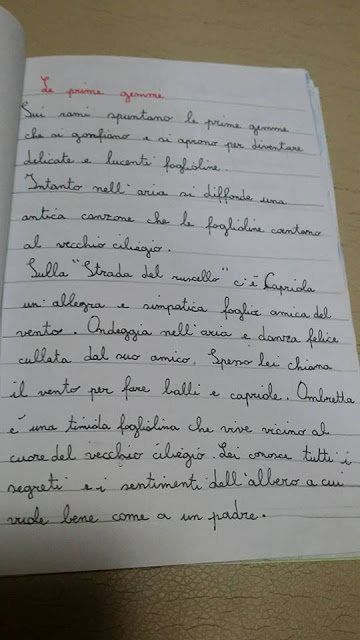 Le prime gemme
Sui rami spuntano le prime gemme
che si gonfiano e si aprono per diventare
delicate e lucenti foglioline.
Intanto nell'aria si diffonde una
antica canzone che le foglioline cantano
al vecchio ciliegio.
Sulla "Strada del ruscello" c'è Capriola
un'allegra e simpatica foglia amica del
vento. Ondeggia nell'aria e danza felice
cullata dal suo amico. Spesso lei chiama
il vento per fare balli e capriole. Ombretta
è una timida fogliolina che vive vicino al
cuore del vecchio ciliegio. Lei conosce tutti i
segreti e i sentimenti dell'albero a cui
vuole bene come a un padre.